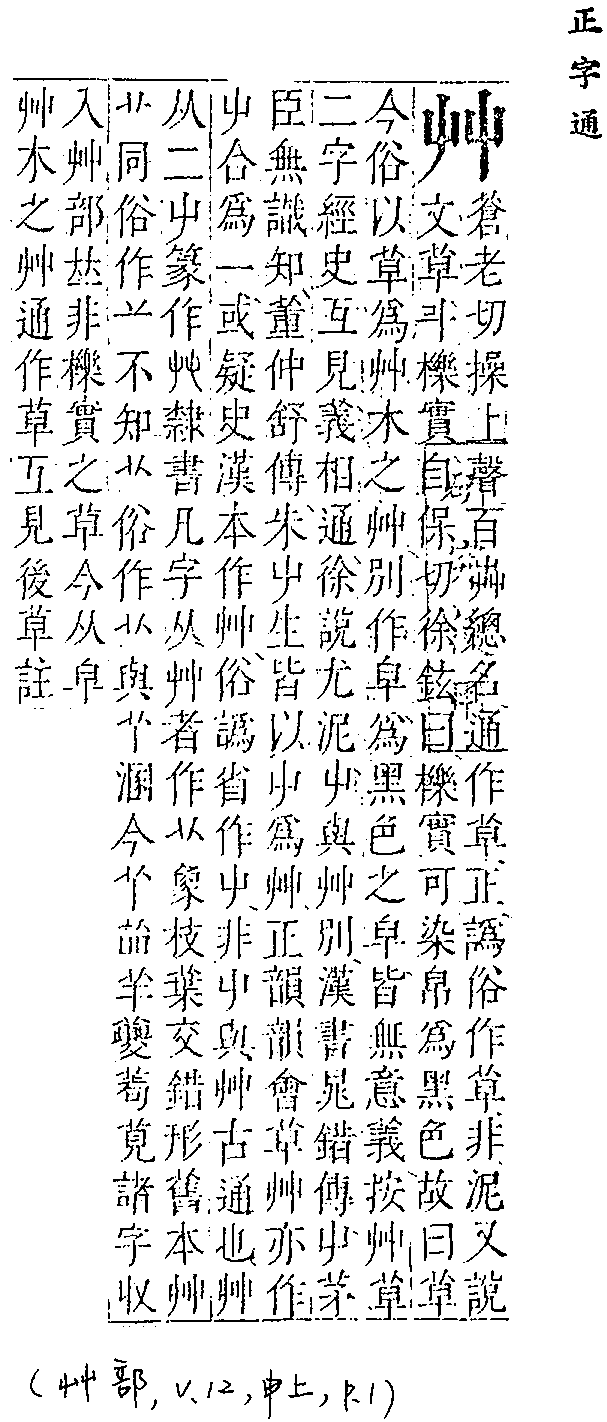 正字通
艸
蒼老切操上聲百艸總名通作草正譌俗作草非泥又說
文草斗櫟實自保切徐鉉曰櫟實可染帛爲黑色故曰草
今俗以草爲艸木之艸別作皁爲黑色之皁皆無意義按艸草
二字經史互見義相通徐說尤泥屮與艸別漢書晁錯傳屮茅
臣無識知董仲舒傳朱屮生皆以屮爲艸正韻韻會草艸亦作
屮合爲一或疑史漢本作艸俗譌省作屮非屮與艸古通也艸
从二屮篆作艸隸書凡字从艸者作艹象枝葉交錯形舊本艸
艹同俗作䒑不知艹俗作艹與溷今羊夔茍莧諸字收
入艸部𠀤非櫟實之草今从皁
艸木之艸通作草互見後草註
(艸部, v.12, 申上, p.1)